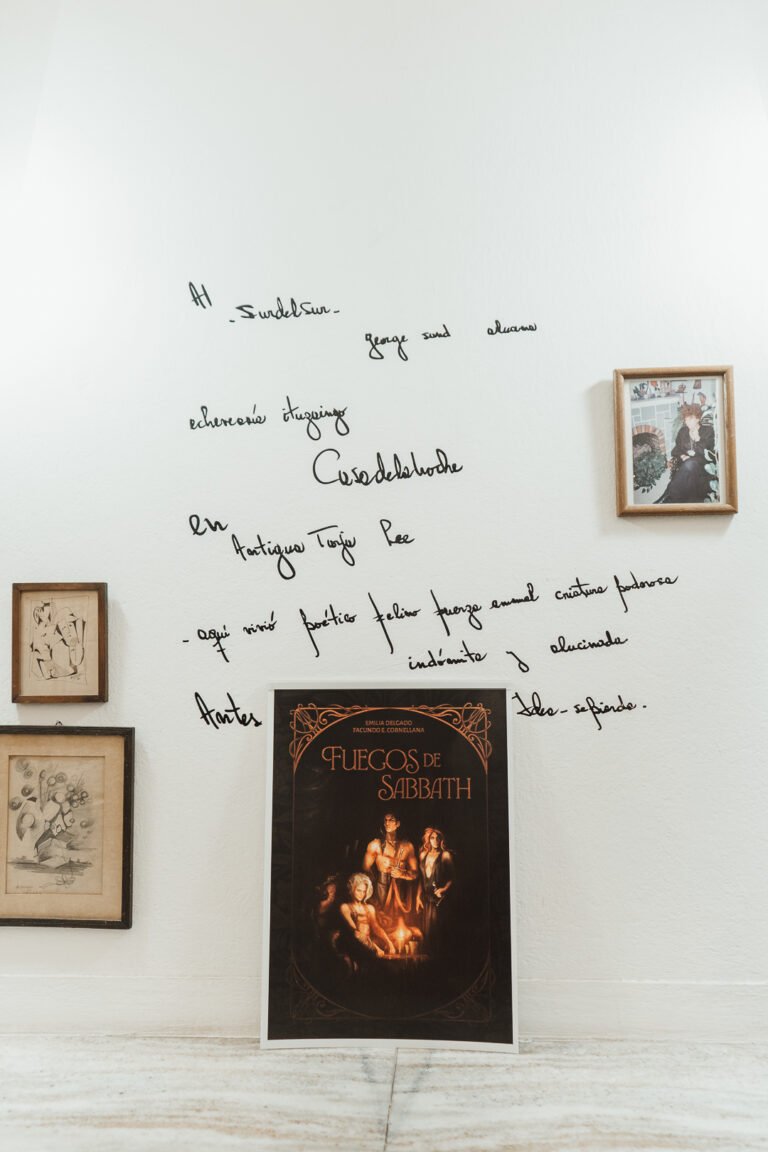 Al
- Surdelsur -
george sand
ituzaingo
Casadelanoche
en
Antigua Tarja Lee
- aquí vivió poético felino fuerza animal criatura poderosa
indómita y alucinada
Antes
EMILIA DELGADO
FACUNDO E. CORNELLANA
FUEGOS DE
SABBATH